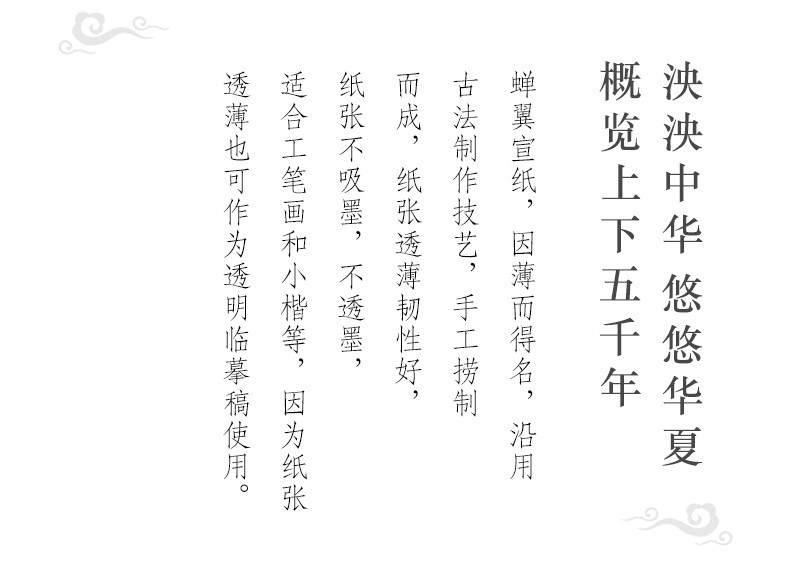 泱泱中华 悠悠华夏
概览上下五千年
蝉翼宣纸，因薄而得名，沿用
古法制作技艺，手工捞制
而成，纸张透薄韧性好，
纸张不吸墨，不透墨，
适合工笔画和小楷等，因为纸张
透薄也可作为透明临摹稿使用。